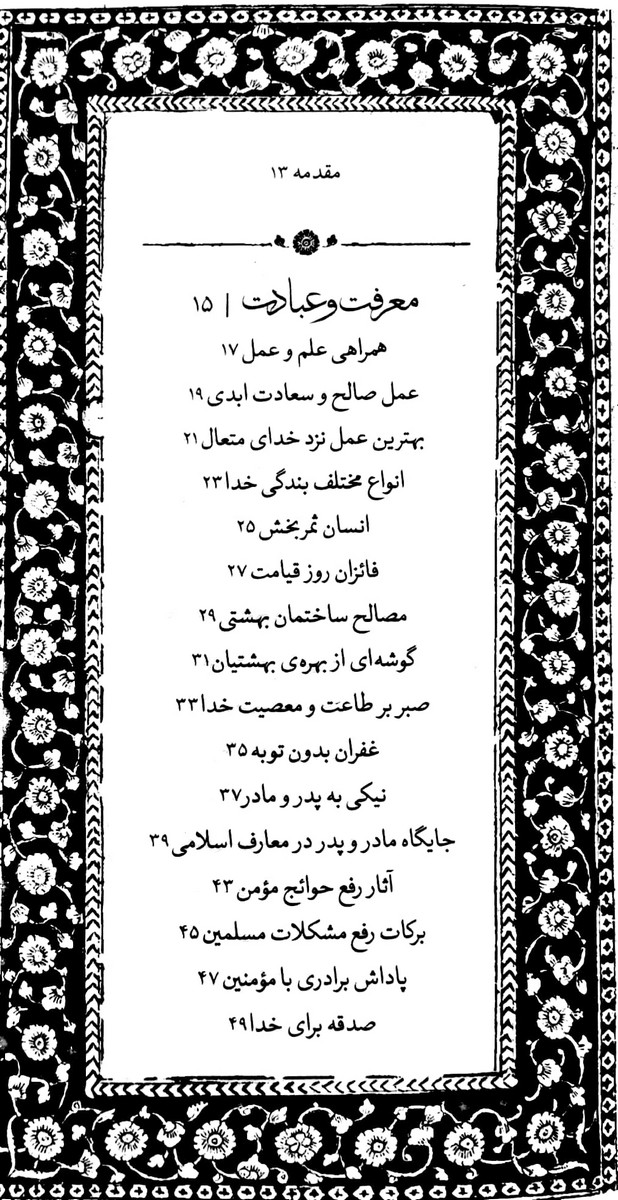 مقدمه ۱۳
معرفت و عبادت | ۱۵
همراهی علم و عمل ۱۷
عمل صالح و سعادت ابدی ۱۹
بهترین عمل نزد خدای متعال ۲۱
انواع مختلف بندگی خدا ۲۳
انسان ثمربخش ۲۵
فائزان روز قیامت ۲۷
مصالح ساختمان بهشتی ۲۹
گوشه‌ای از بهره‌ی بهشتیان ۳۱
صبر بر طاعت و معصیت خدا ۳۳
غفران بدون توبه ۳۵
نیکی به پدر و مادر ۳۷
جایگاه مادر و پدر در معارف اسلامی ۳۹
آثار رفع حوائج مؤمن ۴۳
برکات رفع مشکلات مسلمین ۴۵
پاداش برادری با مؤمنین ۴۷
صدقه برای خدا ۴۹